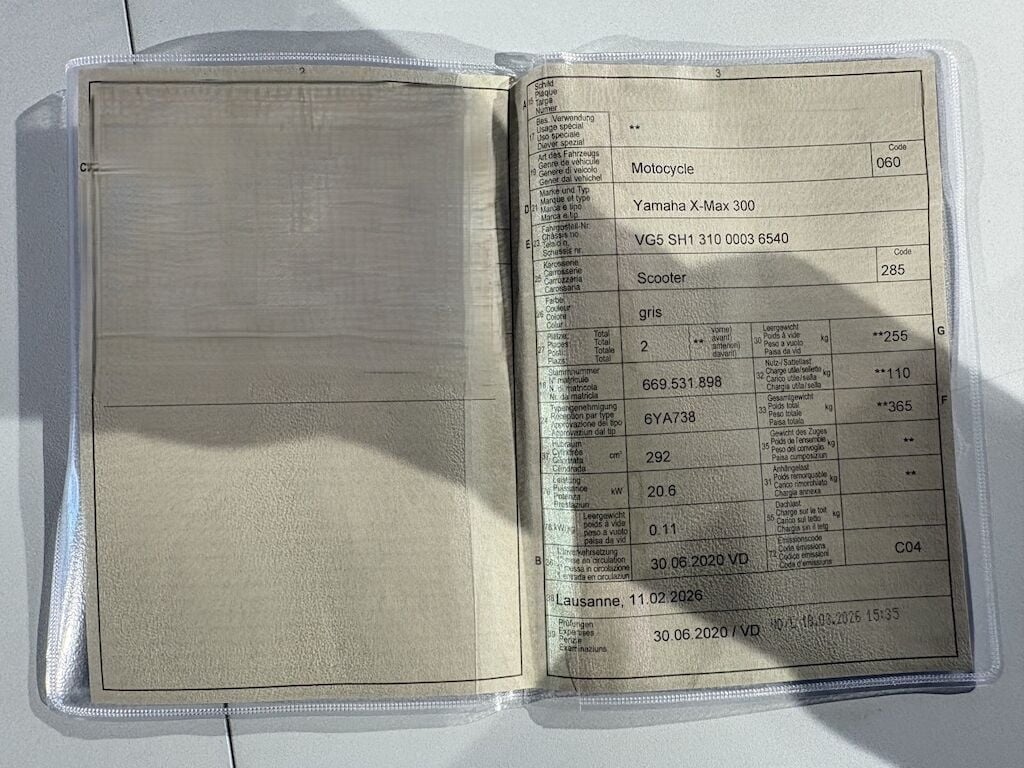 2
3
C1
A 15 Schild
Plaque
Targa
Numer
17 Bes. Verwendung
Usage spécial
Uso speciale
Diever spezial
**
19 Art des Fahrzeugs
Genre de véhicule
Genere di veicolo
Gener dal vehichel
Motocycle
Code
060
D 21 Marke und Typ
Marque et type
Marca e tipo
Marca e tip
Yamaha X-Max 300
E 23 Fahrgestell-Nr.
Châssis no
Telaio n.
Schassis nr.
VG5 SH1 310 0003 6540
25 Karosserie
Carrosserie
Carrozzeria
Carossaria
Scooter
Code
285
26 Farbe
Couleur
Colore
Colur
gris
27 Plätze: Total
Places: Total
Posti: Totale
Plazs: Total
2
** vorne)
avant)
anteriori)
davant)
30 Leergewicht
Poids à vide
Peso a vuoto
Paisa da vid
kg
**255
G
18 Stammnummer
N° matricule
N. di matricola
Nr. da matricla
669.531.898
32 Nutz-/Sattellast
Charge utile/sellette
Carico utile/sella
Chargia utila/sella
kg
**110
24 Typengenehmigung
Réception par type
Approvazione del tipo
Approvaziun dal tip
6YA738
33 Gesamtgewicht
Poids total
Peso totale
Paisa totala
kg
**365
F
37 Hubraum
Cylindrée
Cilindrata
Cilindrada
cm³
292
35 Gewicht des Zuges
Poids de l'ensemble
Peso del convoglio
Paisa cumposiziun
kg
**
76 Leistung
Puissance
Potenza
Prestaziun
kW
20.6
31 Anhängelast
Poids remorquable
Carico rimorchiato
Chargia annexa
kg
**
78 kW/kg
Leergewicht
poids à vide
peso a vuoto
paisa da vid
0.11
55 Dachlast
Charge sur le toit
Carico sul tetto
Chargia sin il tetg
kg
B 36 1. Inverkehrsetzung
1. mise en circulation
1. messa in circolazione
1. entrada en circulaziun
30.06.2020 VD
72 Emissionscode
Code émissions
Codice emissioni
Code d'emissiuns
C04
38 Lausanne, 11.02.2026
39 Prüfungen
Expertises
Perizie
Examinaziuns
30.06.2020 / VD
VD/L 18.03.2026 15:35